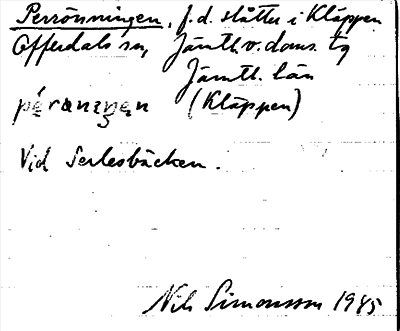 Perrönningen, f.d. slåtter i Kläppen
Offerdals sn, Jämtl. v. doms. tg
Jämtl. län
péranıŋen (Kläppen)
Vid Serlesbäcken.
Nils Simonsson 1945